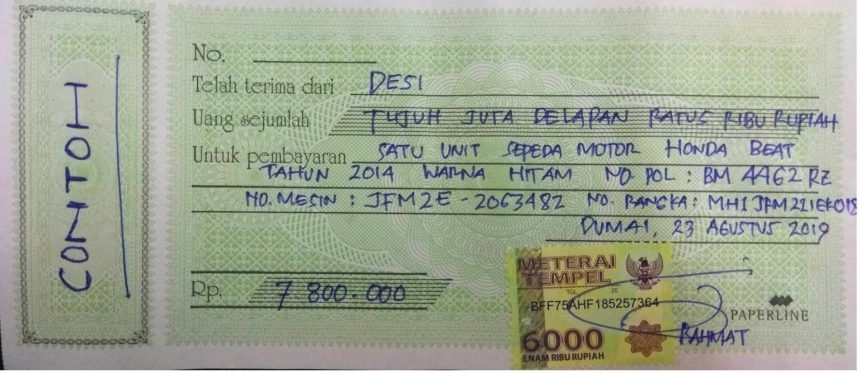 CONTOH
No.
Telah terima dari DESI
Uang sejumlah TUJUH JUTA DELAPAN RATUS RIBU RUPIAH
Untuk pembayaran SATU UNIT SEPEDA MOTOR HONDA BEAT
TAHUN 2014 WARNA HITAM NO. POL : BM 4462 RZ
NO. MESIN : JFM2E - 2063482 NO. RANGKA :
DUMAI, 23 AGUSTUS 2019
METERAI
TEMPEL
TGL 20
BFF75AHF185257364
Rp. 7 800.000
6000
ENAM RIBU RUPIAH
PAPERLINE
RAHMAT